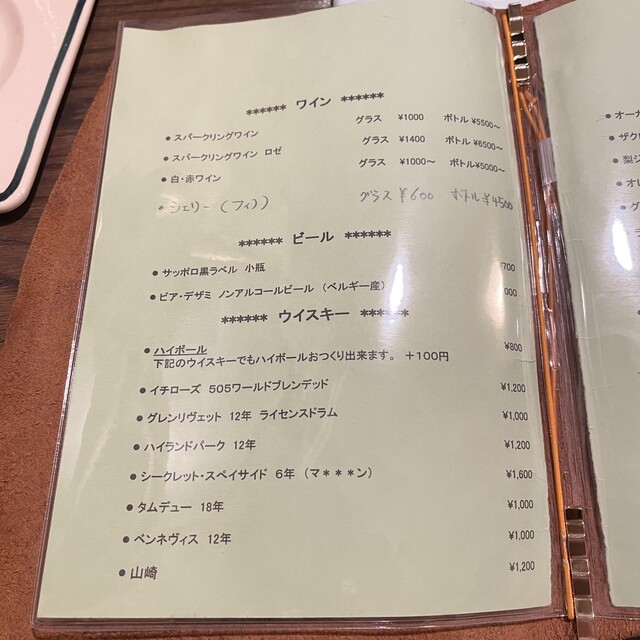 ****** ワイン ******
• スパークリングワイン グラス ¥1000 ボトル ¥5500~
• スパークリングワイン ロゼ グラス ¥1400 ボトル ¥6500~
• 白・赤ワイン グラス ¥1000~ ボトル¥5000~
• シェリー (フィノ) グラス ¥600 ボトル ¥4500
****** ビール ******
• サッポロ黒ラベル 小瓶 ¥700
• ビア・デザミ ノンアルコールビール (ベルギー産)
****** ウイスキー ******
• ハイボール ¥800
下記のウイスキーでもハイボールおつくり出来ます。 +100円
• イチローズ 505ワールドブレンデッド ¥1,200
• グレンリヴェット 12年 ライセンスドラム ¥1,000
• ハイランドパーク 12年 ¥1,200
• シークレット・スペイサイド 6年 (マ***ン) ¥1,600
• タムデュー 18年 ¥1,000
• ベンネヴィス 12年 ¥1,000
• 山崎 ¥1,200
• オーガ
• ザクロ
• 梨ジ
• オレ
• グ